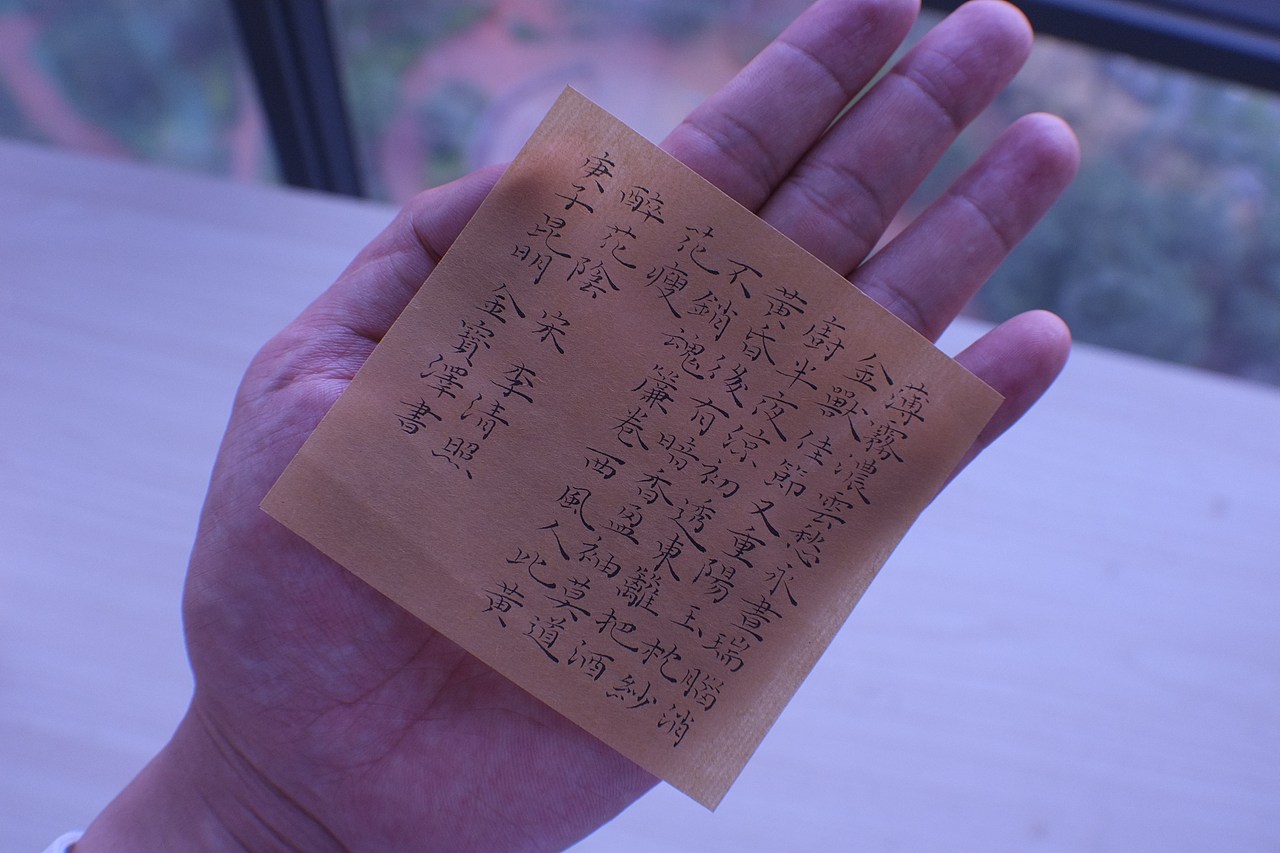 薄霧濃雲愁永晝瑞腦消
金獸佳節又重陽玉枕紗
廚半夜涼初透東籬把酒
黃昏後有暗香盈袖莫道
不銷魂簾卷西風人此黃
花瘦
醉花陰 宋 李清照
庚子昆明 金寶澤書